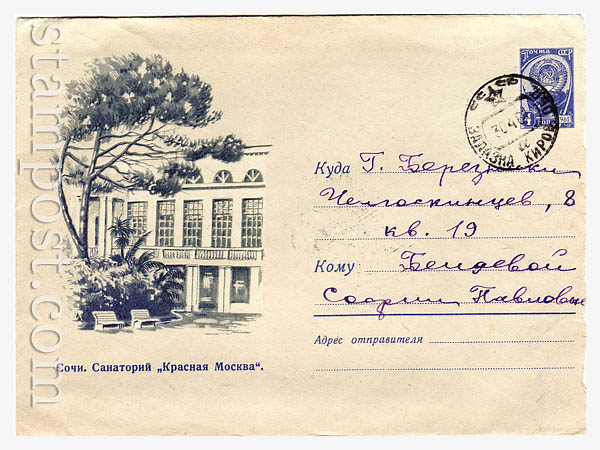 stampost.com
почта СССР
4 коп 1961
СССР
ЗАЛАЗНА КИРОВ
Куда Г. Березники
Челюскинцев, 8
кв. 19
Кому Бендевой
Софии Павловне
Адрес отправителя
Сочи. Санаторий „Красная Москва“.